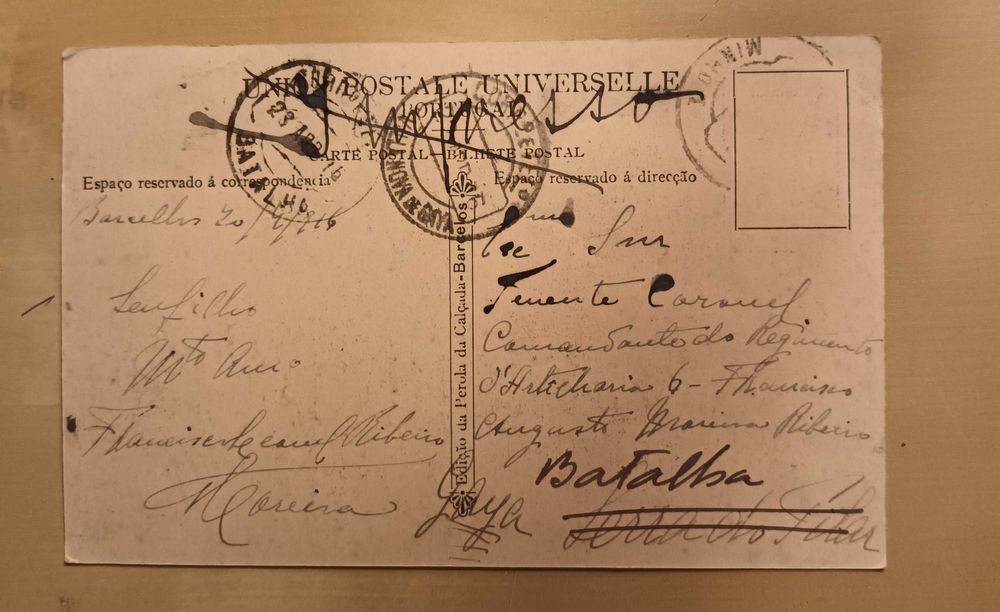 UNION POSTALE UNIVERSELLE
PORTUGAL
Impresso
CARTE POSTAL - BILHETE POSTAL
Espaço reservado á correspondencia
Espaço reservado á direcção
BATALHA
VILA NOVA DE GAIA
MINHO
Barcellos 20/4/916
Seu filho
Mto Amo
Francisco Ribeiro
Moreira
Edição da Perola da Calçada-Barcelos
Exmo Snr
Tenente Coronel
Comandante do Regimento
d'Artigharia 6 - Francisco
Augusto Moreira Ribeiro
Batalha
Gaya Serra do Pilar